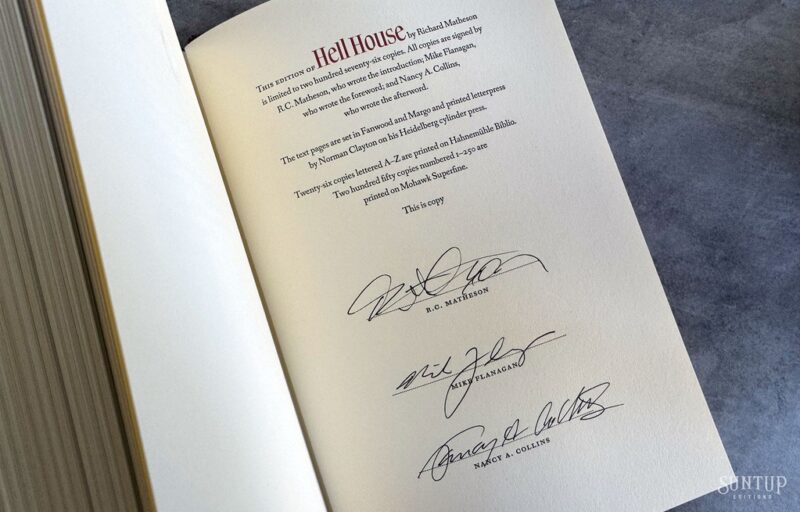 THIS EDITION OF Hell House by Richard Matheson
is limited to two hundred seventy-six copies. All copies are signed by
R.C. Matheson, who wrote the introduction; Mike Flanagan,
who wrote the foreword; and Nancy A. Collins,
who wrote the afterword.
The text pages are set in Fanwood and Margo and printed letterpress
by Norman Clayton on his Heidelberg cylinder press.
Twenty-six copies lettered A–Z are printed on Hahnemühle Biblio.
Two hundred fifty copies numbered 1–250 are
printed on Mohawk Superfine.
This is copy
R.C. MATHESON
MIKE FLANAGAN
Nancy A. Collins
NANCY A. COLLINS
SUNTUP
EDITIONS